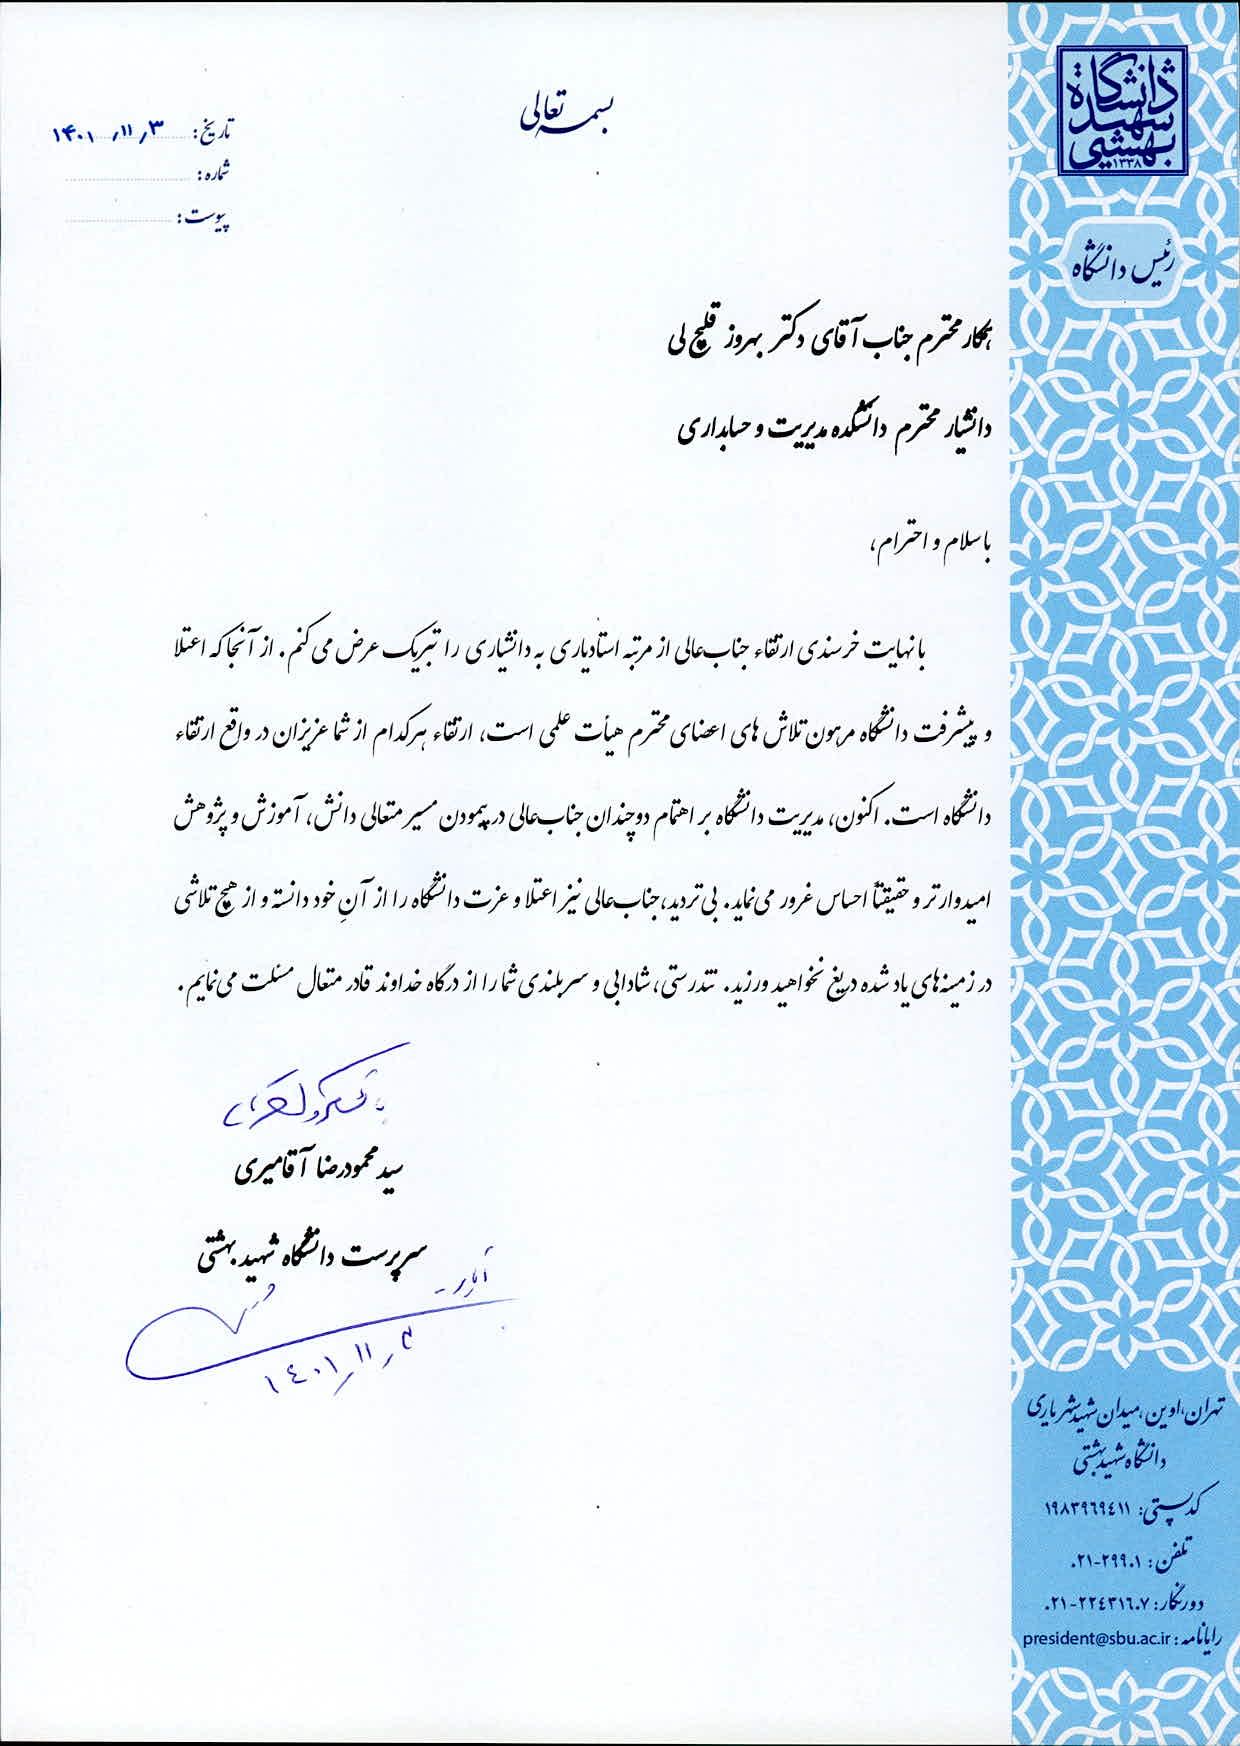 دانشگاه
شهید
بهشتی
۱۳۳۸
رئیس دانشگاه
بسمه تعالی
تاریخ: ۱۴۰۱/۱۱/۳
شماره:
پیوست:
همکار محترم جناب آقای دکتر بهروز قلیچ لی
دانشیار محترم دانشکده مدیریت و حسابداری
با سلام و احترام،
با نهایت خرسندی ارتقاء جناب‌عالی از مرتبه استادیاری به دانشیاری را تبریک عرض می‌کنم. از آنجا که اعتلا
و پیشرفت دانشگاه مرهون تلاش های اعضای محترم هیأت علمی است، ارتقاء هرکدام از شما عزیزان در واقع ارتقاء
دانشگاه است. اکنون، مدیریت دانشگاه بر اهتمام دوچندان جناب‌عالی در پیمودن مسیر متعالی دانش، آموزش و پژوهش
امیدوارتر و حقیقتاً احساس غرور می‌نماید. بی‌تردید، جناب‌عالی نیز اعتلا و عزت دانشگاه را از آنِ خود دانسته و از هیچ تلاشی
در زمینه‌های یاد شده دریغ نخواهید ورزید. تندرستی، شادابی و سربلندی شما را از درگاه خداوند قادر متعال مسئلت می‌نمایم.
سید محمودرضا آقامیری
سرپرست دانشگاه شهید بهشتی
۱۴۰۱/۱۱/۳
تهران، اوین، میدان شهید شهریاری
دانشگاه شهید بهشتی
کدپستی: ۱۹۸۳۹۶۹۴۱۱
تلفن: ۰۲۱-۲۹۹۰۱
دورنگار: ۰۲۱-۲۲۴۳۱۶۰۷
رایانامه: president@sbu.ac.ir